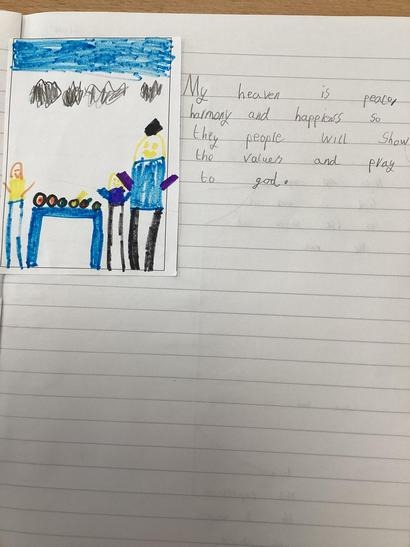 My heaven is peace,
harmony and happiess so
they people will show
the values and pray
to god.